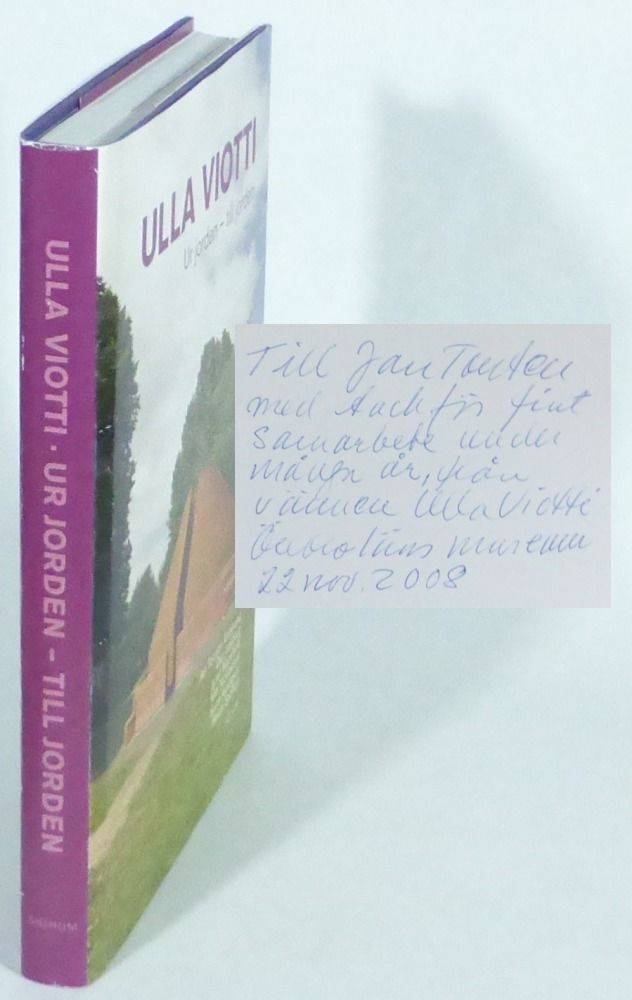 ULLA VIOTTI · UR JORDEN – TILL JORDEN
SIGNUM
ULLA VIOTTI
Ur jorden – till jorden
Till Jan
med tack för fint
samarbete under
många år, från
vännen Ulla Viotti
Örebro läns museum
22 nov. 2008